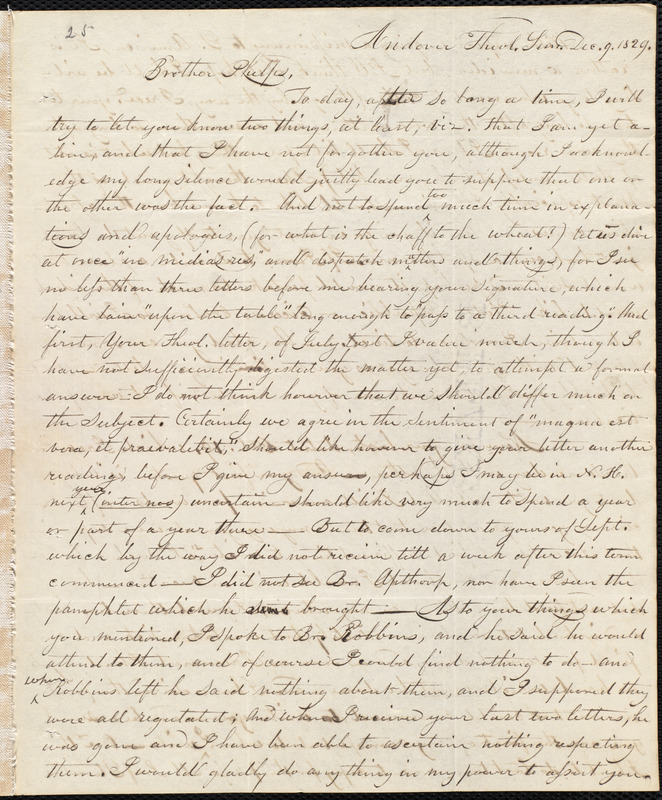 25
Andover Theol. Sem. Dec. 9. 1829.
Brother Phelps,
To day, after so long a time, I will
try to let you know two things, at least, viz. that I am yet a-
live, and that I have not forgotten you, although I acknowl-
edge my long silence would justly lead you to suppose that one or
the other was the fact. And not to spend too much time in explana-
tions and apologies, (for what is the chaff to the wheat!) let us dive
at once "in medias res," and despatch matters and things, for I see
no less than three letters before me bearing your signature, which
have lain "upon the table" long enough to pass to a third reading. And
first, Your Theol. letter, of July last I value much, though I
have not sufficiently digested the matter yet, to attempt a formal
answer - I do not think however that we should differ much on
the subject. Certainly we agree in the sentiment of "magna est
vera, et praevalebit," should like however to give your letter another
reading, before I give my answer, perhaps I may be in N. H.
next year, (inter nos) uncertain - should like very much to spend a year
or part of a year there. — But to come down to yours of Sept.
which by the way I did not receive till a week after this term
commenced — I did not see Br. Apthorp, nor have I seen the
pamphlet which he brought — As to your things which
you mentioned, I spoke to Br. Robbins, and he said he would
attend to them, and of course I could find nothing to do - and
when Robbins left he said nothing about them, and I supposed they
were all regulated; and when I received your last two letters, he
was gone and I have been able to ascertain nothing respecting
them. I would gladly do anything in my power to assist you.